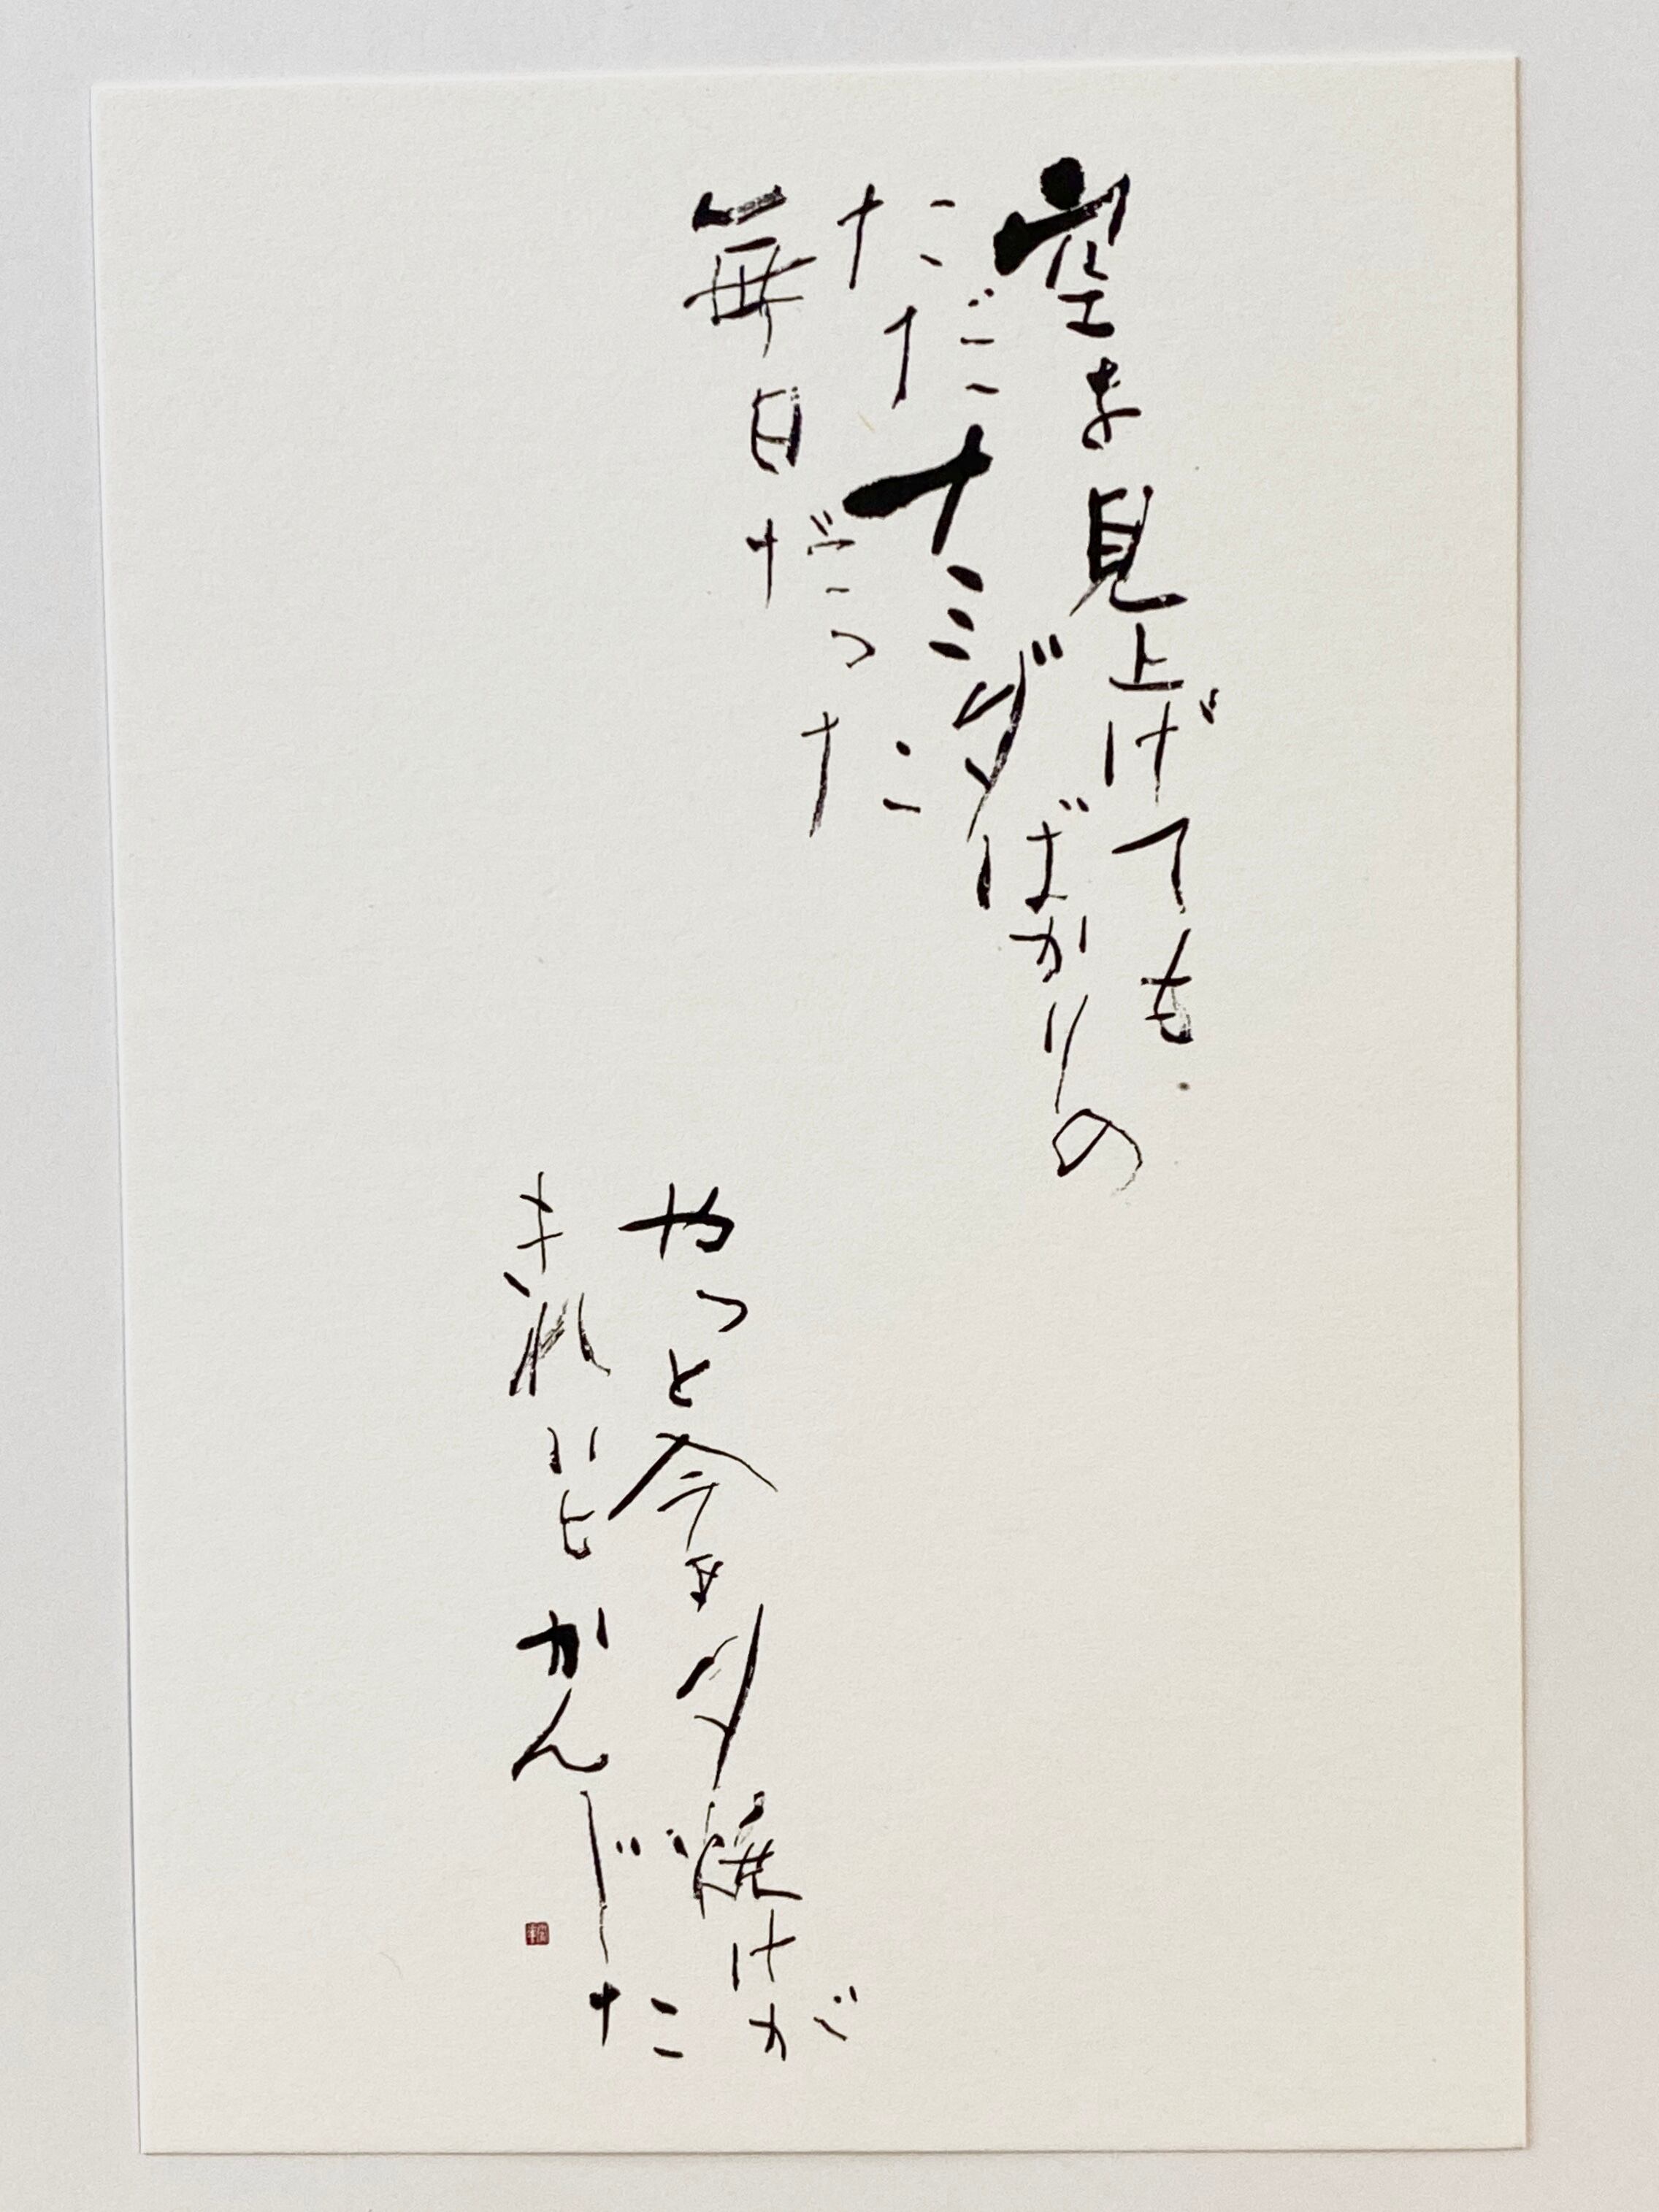 空を見上げても
ただナミダばかりの
毎日だった
やっと今日夕焼けが
きれいとかんじた